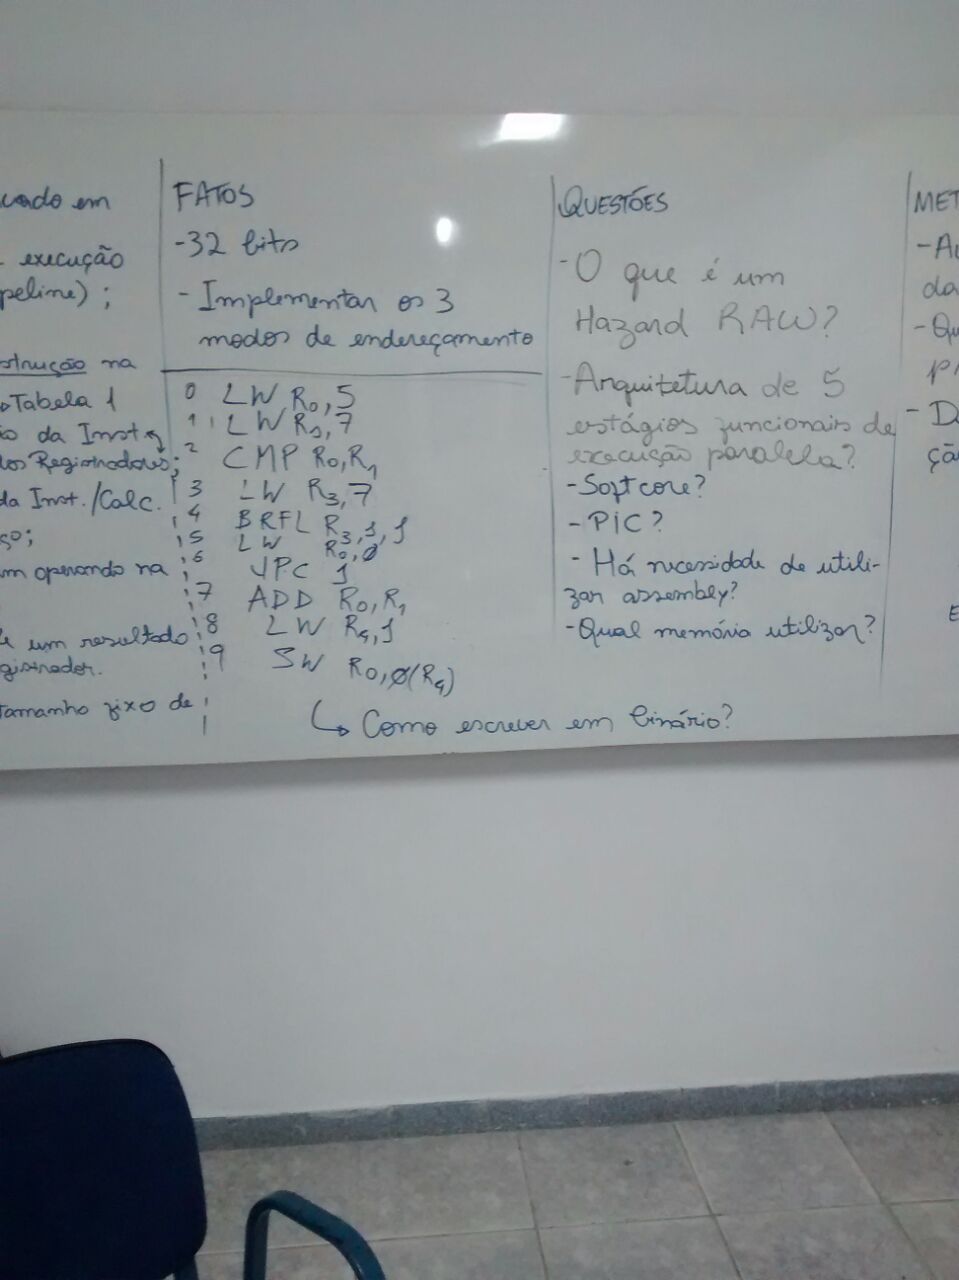 cado em
execução
peline);
strução na
Tabela 1
o da Inst.
dos Registradores;
da Inst./Calc.
ço;
m operando na
um resultado
gistrador.
tamanho fixo de
FATOS
-32 bits
- Implementar os 3
modos de endereçamento
0 LW R0,5
1 LW R1,7
2 CMP R0,R1
3 LW R3,7
4 BRFL R3,1,1
5 LW R0,0
6 JPC 1
7 ADD R0,R1
8 LW R4,1
9 SW R0,0(R4)
↳ Como escrever em binário?
QUESTÕES
- O que é um
Hazard RAW?
- Arquitetura de 5
estágios funcionais de
execução paralela?
- Softcore?
- PIC?
- Há necessidade de utili-
zar assembly?
- Qual memória utilizar?
MET
- A
da
- Qu
- D
çã
E